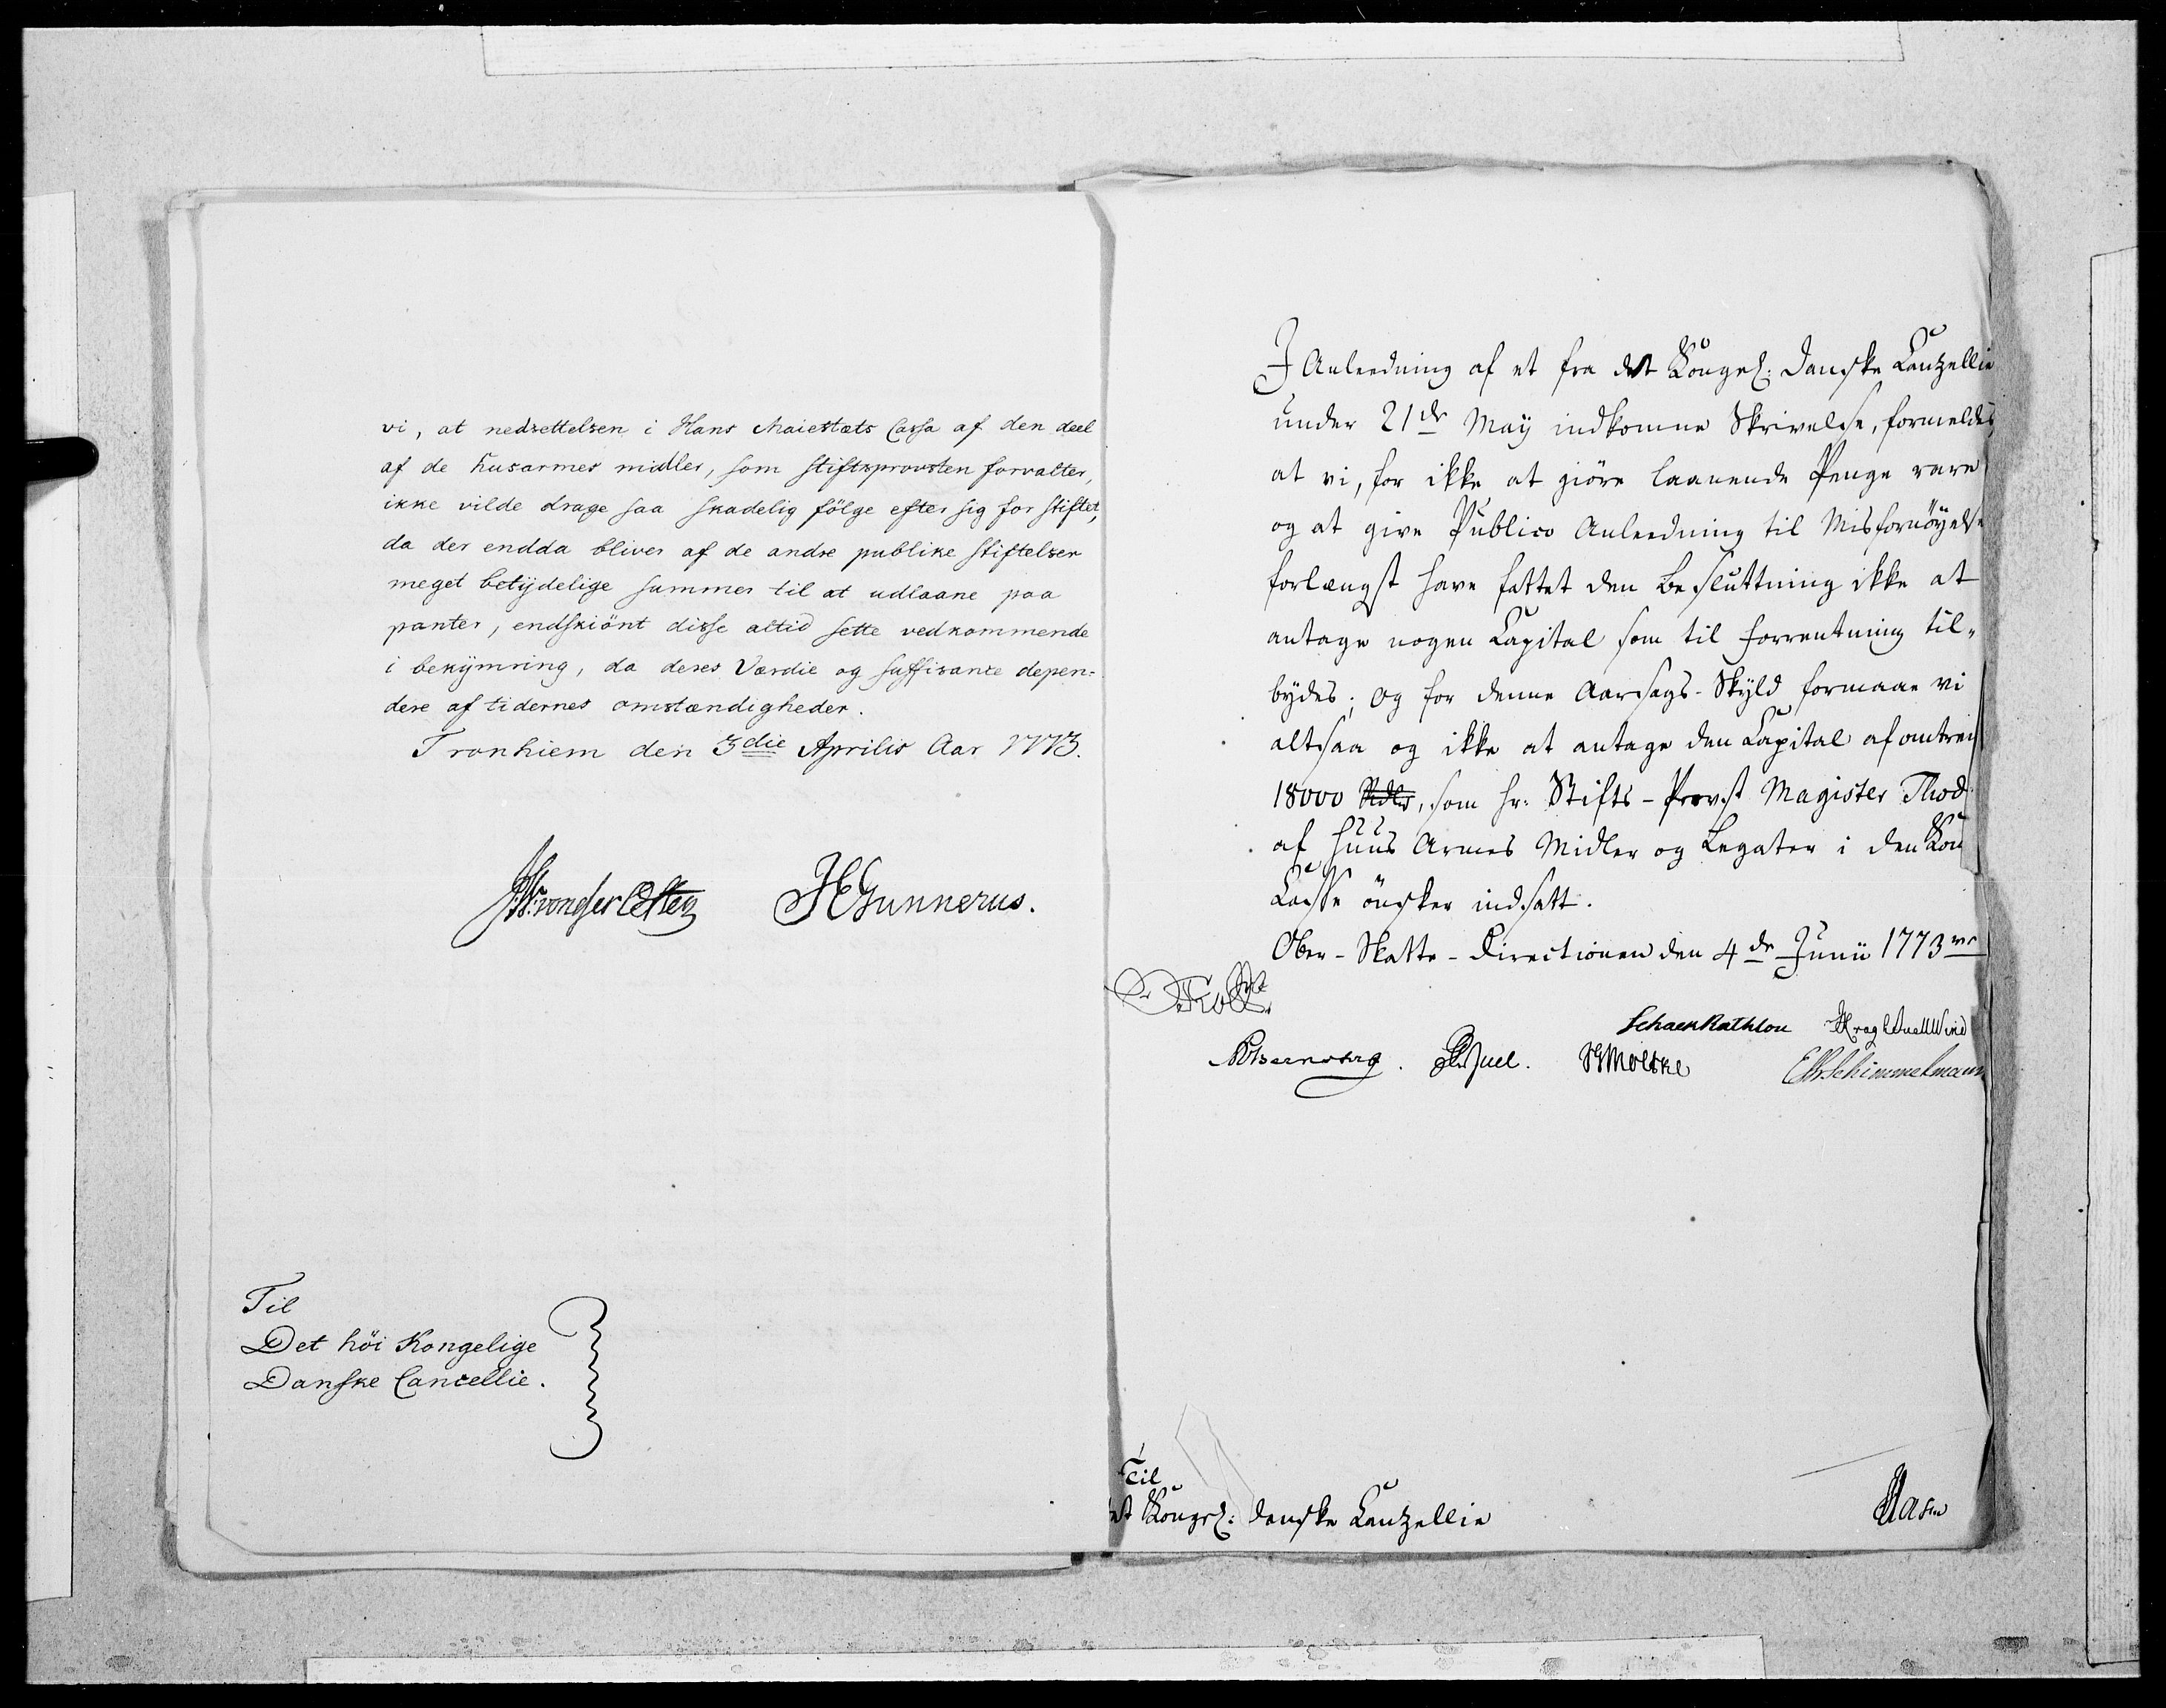 vi, at nedsettelsen i Hans Maiestæts Cassa af den deel
af de husarmes midler, som stiftsprovsten forvalter,
ikke vilde drage saa skadelig fölge efter sig for stiftet,
da der endda bliver af de andre publike stiftelser
meget betÿdelige summer til at udlaane paa
panter, endskiönt disse altid sette vedkommende
i bekÿmring, da deres Værdie og suffisance depen=
dere af tidernes omstændigheder.
Tronhiem den 3die Aprilis Aar 1773.
von der Osten JEGunnerus.
Til
Det höi Kongelige
Danske Cancellie.
I Anleedning af et fra det Kongel: Danske Canzellie
under 21de Maÿ indkomne Skrivelse, formeldes
at vi, for ikke at giöre laanende Penge rare
og at give Publico Anleedning til Misfornöÿelse
forlængst have fattet den Besluttning ikke at
antage nogen Capital som til Forrentning til-
bÿdes; og for denne Aarsags-Skÿld formaae vi
altsaa og ikke at antage den Capital af omtren
18000 Rdlr, som Hr: Stifts-Provst Magister Thod
af Huus Armes Midler og Legater i den Kon
Casse önsker indsatt.
Ober-Skatte-Directionen den 4de Junii 1773
Schack Rathlou Krag Juell Wind
Bernstorg. Juel. Moltke Schimmelmann
Til
et Kongel: danske Canzellie